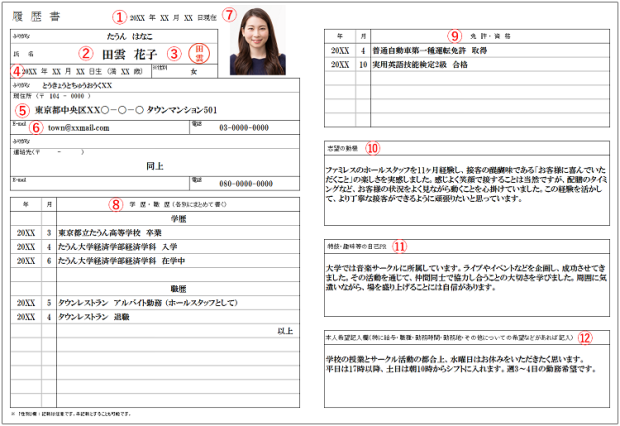 履歴書
① 20XX 年 XX 月 XX 日現在
⑦
ふりがな たうん はなこ
氏 名 ② 田雲 花子 ③ 田雲
④ 20XX 年 XX 月 XX 日生 (満 XX 歳) ※性別 女
ふりがな とうきょうとちゅうおうくXX
現住所 (〒 104 - 0000 )
⑤ 東京都中央区XX○-○-○ タウンマンション501
E-mail ⑥ town@xxmail.com 電話 03-0000-0000
ふりがな
連絡先 (〒 - )
同上
E-mail 電話 080-0000-0000
年 月 ⑧ 学歴・職歴 (各別にまとめて書く)
学歴
20XX 3 東京都立たうん高等学校 卒業
20XX 4 たうん大学経済学部経済学科 入学
20XX 6 たうん大学経済学部経済学科 在学中
職歴
20XX 5 タウンレストラン アルバイト勤務 (ホールスタッフとして)
20XX 4 タウンレストラン 退職
以上
※ 「性別」欄:記載は任意です。未記載とすることも可能です。
年 月 ⑨ 免許・資格
20XX 4 普通自動車第一種運転免許 取得
20XX 10 実用英語技能検定2級 合格
志望の動機 ⑩
ファミレスのホールスタッフを11ヶ月経験し、接客の醍醐味である「お客様に喜んでいた
だくこと」の楽しさを実感しました。感じよく笑顔で接することは当然ですが、配膳のタイミ
ングなど、お客様の状況をよく見ながら動くことを心掛けていました。この経験を活かし
て、より丁寧な接客ができるように頑張りたいと思っています。
特技・趣味等の自己PR ⑪
大学では音楽サークルに所属しています。ライブやイベントなどを企画し、成功させてき
ました。その活動を通じて、仲間同士で協力し合うことの大切さを学びました。周囲に気
遣いながら、場を盛り上げることには自信があります。
本人希望記入欄(特に給与・職種・勤務時間・勤務地・その他についての希望などがあれば記入) ⑫
学校の授業とサークル活動の都合上、水曜日はお休みをいただきたく思います。
平日は17時以降、土日は朝10時からシフトに入れます。週3~4日の勤務希望です。